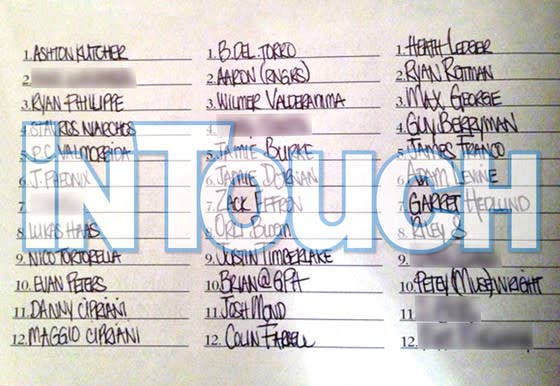 1. ASHTON KUTCHER
2.
3. RYAN PHILIPPE
4. STAVROS NIARCHOS
5. P.C. VALMORBIDA
6. J. PHEONIX
7.
8. LUKAS HAAS
9. NICO TORTORELLA
10. EVAN PETERS
11. DANNY CIPRIANI
12. MAGGIO CIPRIANI
1. B. DEL TORRO
2. AARON (RNGRS)
3. WILMER VALDERAMMA
4.
5. JAMIE BURKE
6. JAMIE DORNAN
7. ZACK EFFRON
8. ORLI BLOOM
9. JUSTIN TIMBERLAKE
10. BRIAN @ GPA
11. JOSH MOND
12. COLIN FARRELL
1. HEATH LEDGER
2. RYAN ROTTMAN
3. MAX GEORGE
4. GUY BERRYMAN
5. JAMES FRANCO
6. ADAM LEVINE
7. GARRET HEDLUND
8. RILEY S
9.
10. PETEY (MUSE) WRIGHT
11.
12.
iNTOUCH